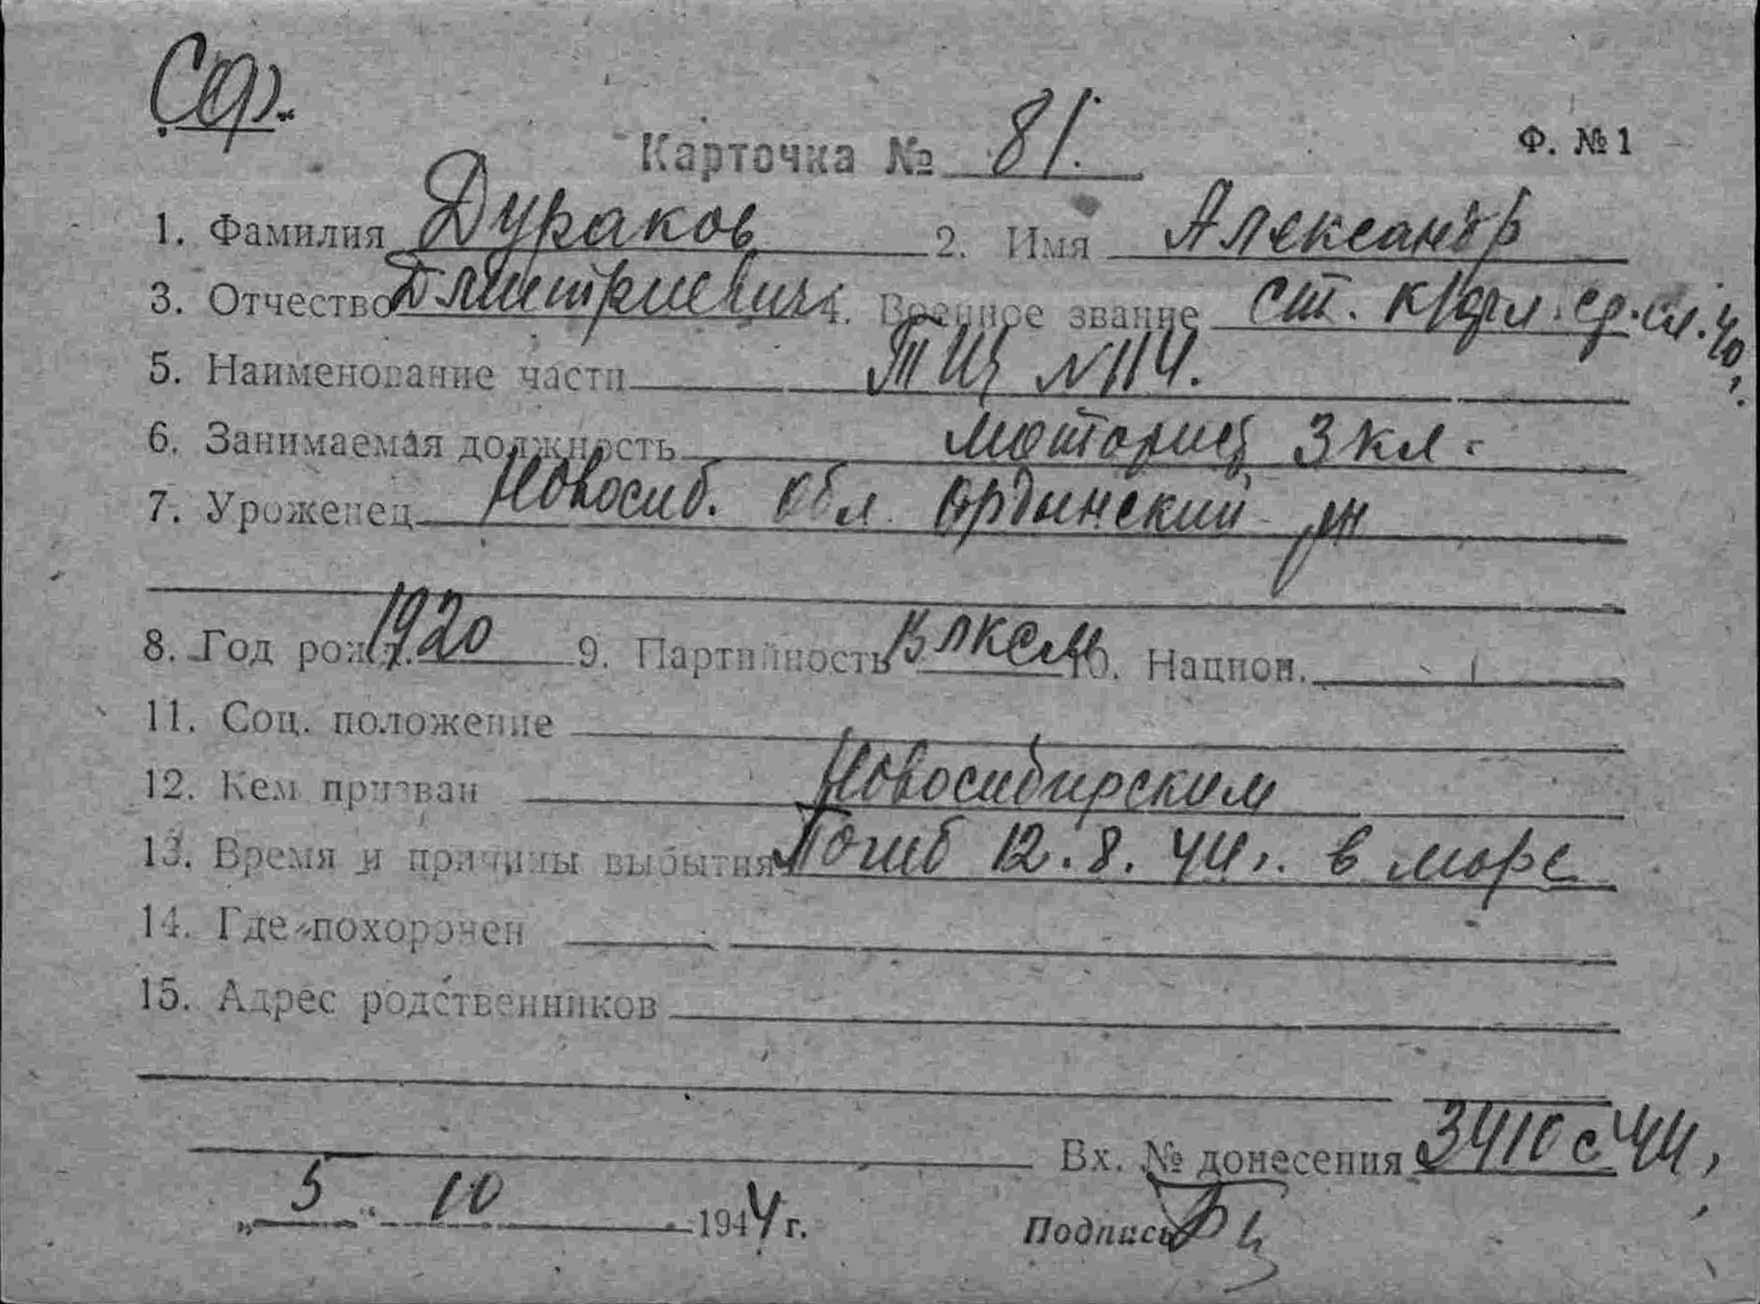 СФ.
Карточка № 81. Ф. №1
1. Фамилия Дураков 2. Имя Александр
3. Отчество Дмитриевич 4. Военное звание ст. к/фл. ср. сл. 40.
5. Наименование части ТЩ №114.
6. Занимаемая должность моторист 3 кл.
7. Уроженец Новосиб. обл Ордынский рн
8. Год рожд. 1920 9. Партийность ВЛКСМ 10. Национ.
11. Соц. положение
12. Кем призван Новосибирским
13. Время и причины выбытия Погиб 12.8.44г. в море
14. Где похоронен
15. Адрес родственников
Вх. № донесения 3410с 44,
„5“ 10 1944 г. Подпись